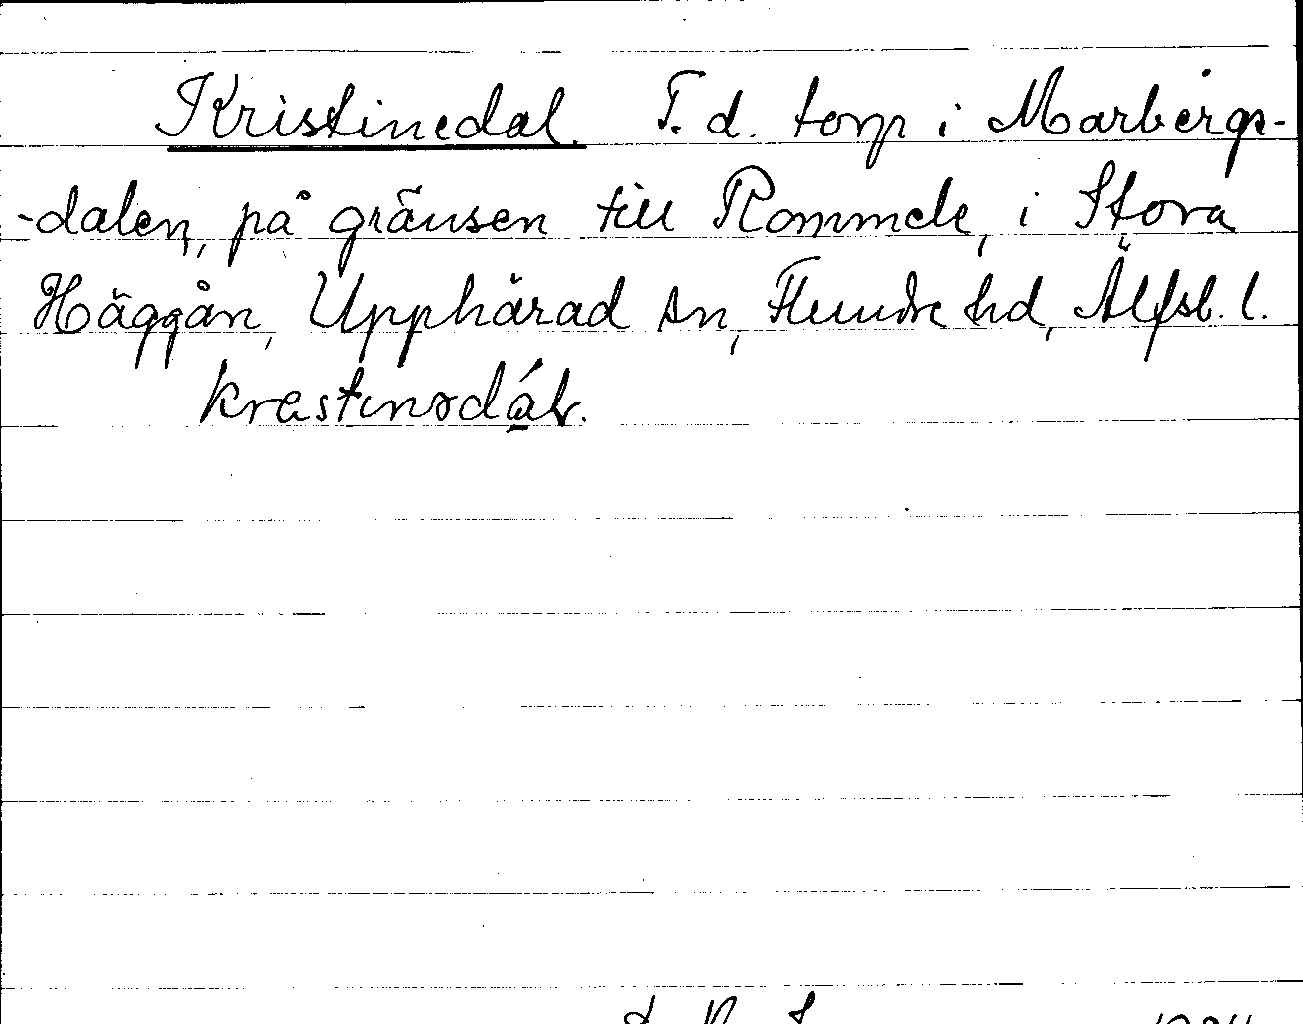 Kristinedal. F. d. torp i Marbergs-
-dalen, på gränsen till Rommele, i Stora
Häggån, Upphärad sn, Flundre hd, Älfsb. l.